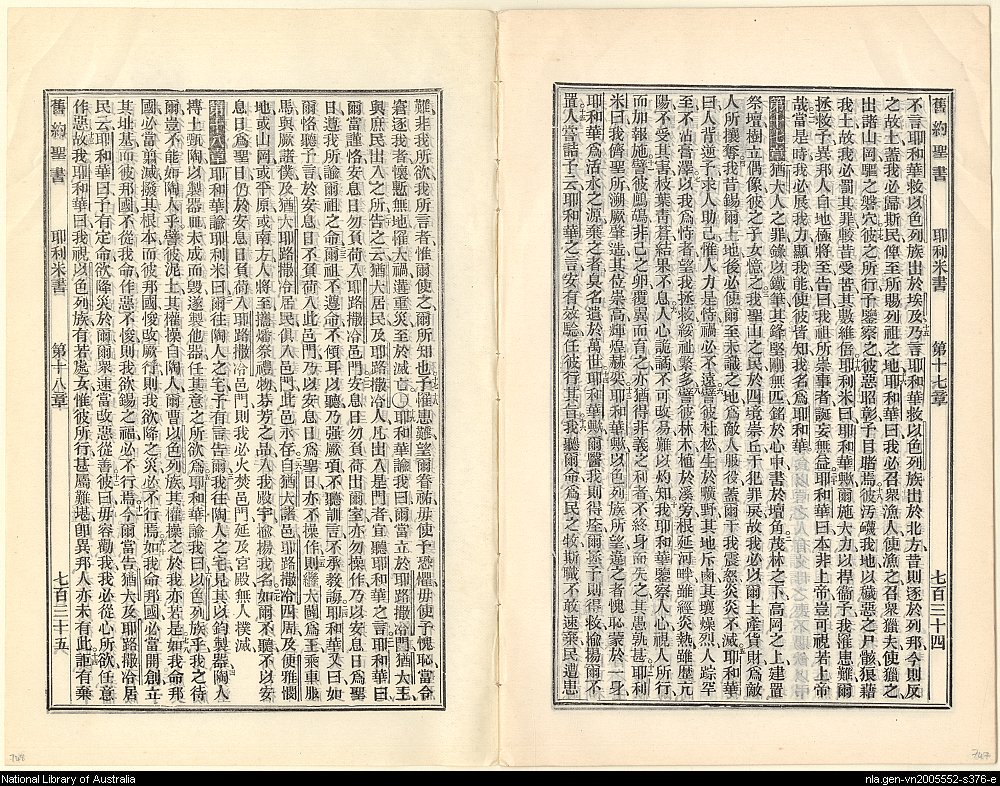 舊約聖書 耶利米書 第十七章 七百三十四
不言耶和華救以色列族出於埃及乃言耶和華救以色列族出於北方昔則逐於列邦今則反
之故土蓋我必歸斯民俾至所賜列祖之地耶和華曰我必召衆漁人使漁之召衆獵夫使獵之
出諸山岡驅之磐穴彼之所行予鑒察之彼惡昭彰予目睹焉彼汚衊我地以穢惡之尸骸狼藉
我土故我必罰其罪戾昔受苦其數維倍耶利米曰耶和華歟爾施大力以捍衞予我罹患難爾
拯救予異邦人自地極將至告曰我祖所崇事者誕妄無益耶和華曰本非上帝豈可視若上帝
哉當是時我必展我力顯我能使彼皆知我名爲耶和華
第十七章猶大人之罪錄以鐵筆其鋒堅剛無匹銘於心中書於壇角茂林之下高岡之上建置
祭壇樹立偶像彼之子女憶之我聖山之民於四境崇丘干犯罪戾故我必以爾土產貨財爲敵
人所攘奪我昔錫爾土地後必使爾至未識之地爲敵人服役蓋爾干我震怒炎炎不滅耶和華
曰人背逆予求人助己惟人力是恃禍必不遠譬彼杜松生於曠野其地斥鹵其壤燥烈人踪罕
至不沾膏澤以我爲恃者望我拯救綏祉綦多譬彼林木植於溪旁根延河畔雖經炎熱雖歷亢
陽不受其害枝葉青蒼結果不息人心詭譎不可救易難以灼知我耶和華鑒察人心視人所行
而加報施譬彼鷓鴣非己之卵覆翼而育之亦猶得非義之利者不終身而失之其愚孰甚耶利
米曰我儕聖所溯厥肇造其位崇高輝煌赫奕耶和華歟以色列族所望遐之者愧恥蒙於一身
耶和華爲活水之源棄之者臭名遺於萬世耶和華歟爾醫我則得痊爾拯予則得救揄揚爾不
置人嘗詰予云耶和華之言安有效驗任彼行其言我聽爾命爲民之牧斯職不敢速棄民遭患
舊約聖書 耶利米書 第十八章 七百三十五
難非我所欲我所言者惟爾使之爾所知也予罹患難望爾眷祐毋使予恐懼毋使予愧恥當令
窘逐我者懷慙無地罹大禍遘重災至於滅亡○耶和華諭我曰爾當立於耶路撒冷門猶大王
與庶民出入之所告之云猶大居民及耶路撒冷人凡出入是門者宜聽耶和華之言耶和華曰
爾當謹恪安息日勿負荷入耶路撒冷邑門安息日勿負荷出爾室亦勿操作乃以安息日爲聖
日遵我所諭爾祖之命爾祖不遵命不傾耳以聽乃强厥項不聽訓言不承敎誨耶和華又曰如
爾恪聽予言於安息日不負荷入此邑門乃以安息日爲聖日亦不操作則纘大闢爲王乘車服
馬與厥諸僕及猶大耶路撒冷居民俱入邑門此邑永存自猶大諸邑耶路撒冷四周及便雅憫
地或山岡或平原或南方人將至攜燔祭禮物芬芳之品入我殿宇揄揚我名如爾不聽不以安
息日爲聖日仍於安息日負荷入耶路撒冷邑門則我必火焚邑門延及宮殿無人撲滅
第十八章耶和華諭耶利米曰爾往陶人之宅予有言告爾我往陶人之宅見其以鈞製器陶人
摶土甄陶以製器皿未成而毀遂製他器任其意之所欲爲耶和華諭我曰以色列族乎我之待
爾豈不能如陶人乎譬彼泥土其權操自陶人爾曹以色列族其權操之於我亦若是如我命邦
國必當翦滅撥其根本而彼邦國悛改厥行則我欲降之災必不行焉如我命邦國必當開創立
其址基而彼邦國不從我命作惡不悛則我欲錫之福必不行焉今爾當告猶大及耶路撒冷居
民云耶和華曰予有定命欲降災於爾爾衆速當改惡從善彼曰毋容勸我我必從心所欲任意
作惡故我耶和華曰我視以色列族有若處女惟彼所行甚屬難堪卽異邦人亦未有此詎有棄
748
747
National Library of Australia
nla.gen-vn2005552-s376-e